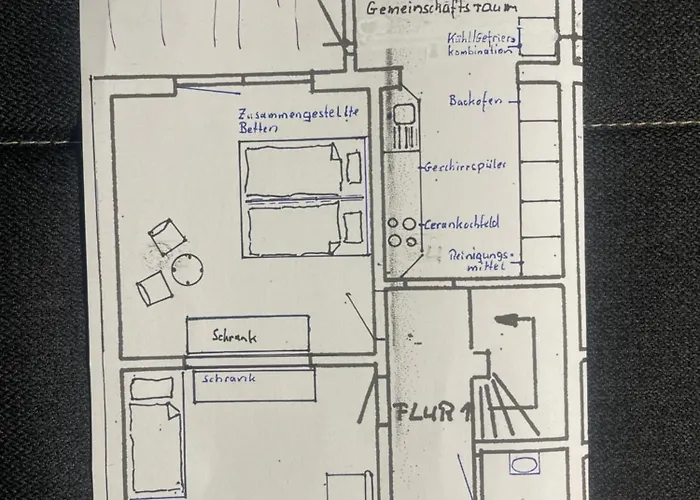 Gemeinschaftsraum
Kühl/Gefrier-
kombination
Backofen
Zusammengestellte
Betten
Geschirrspüler
Cerankochfeld
Reinigungs-
mittel
Schrank
Schrank
FLUR 1